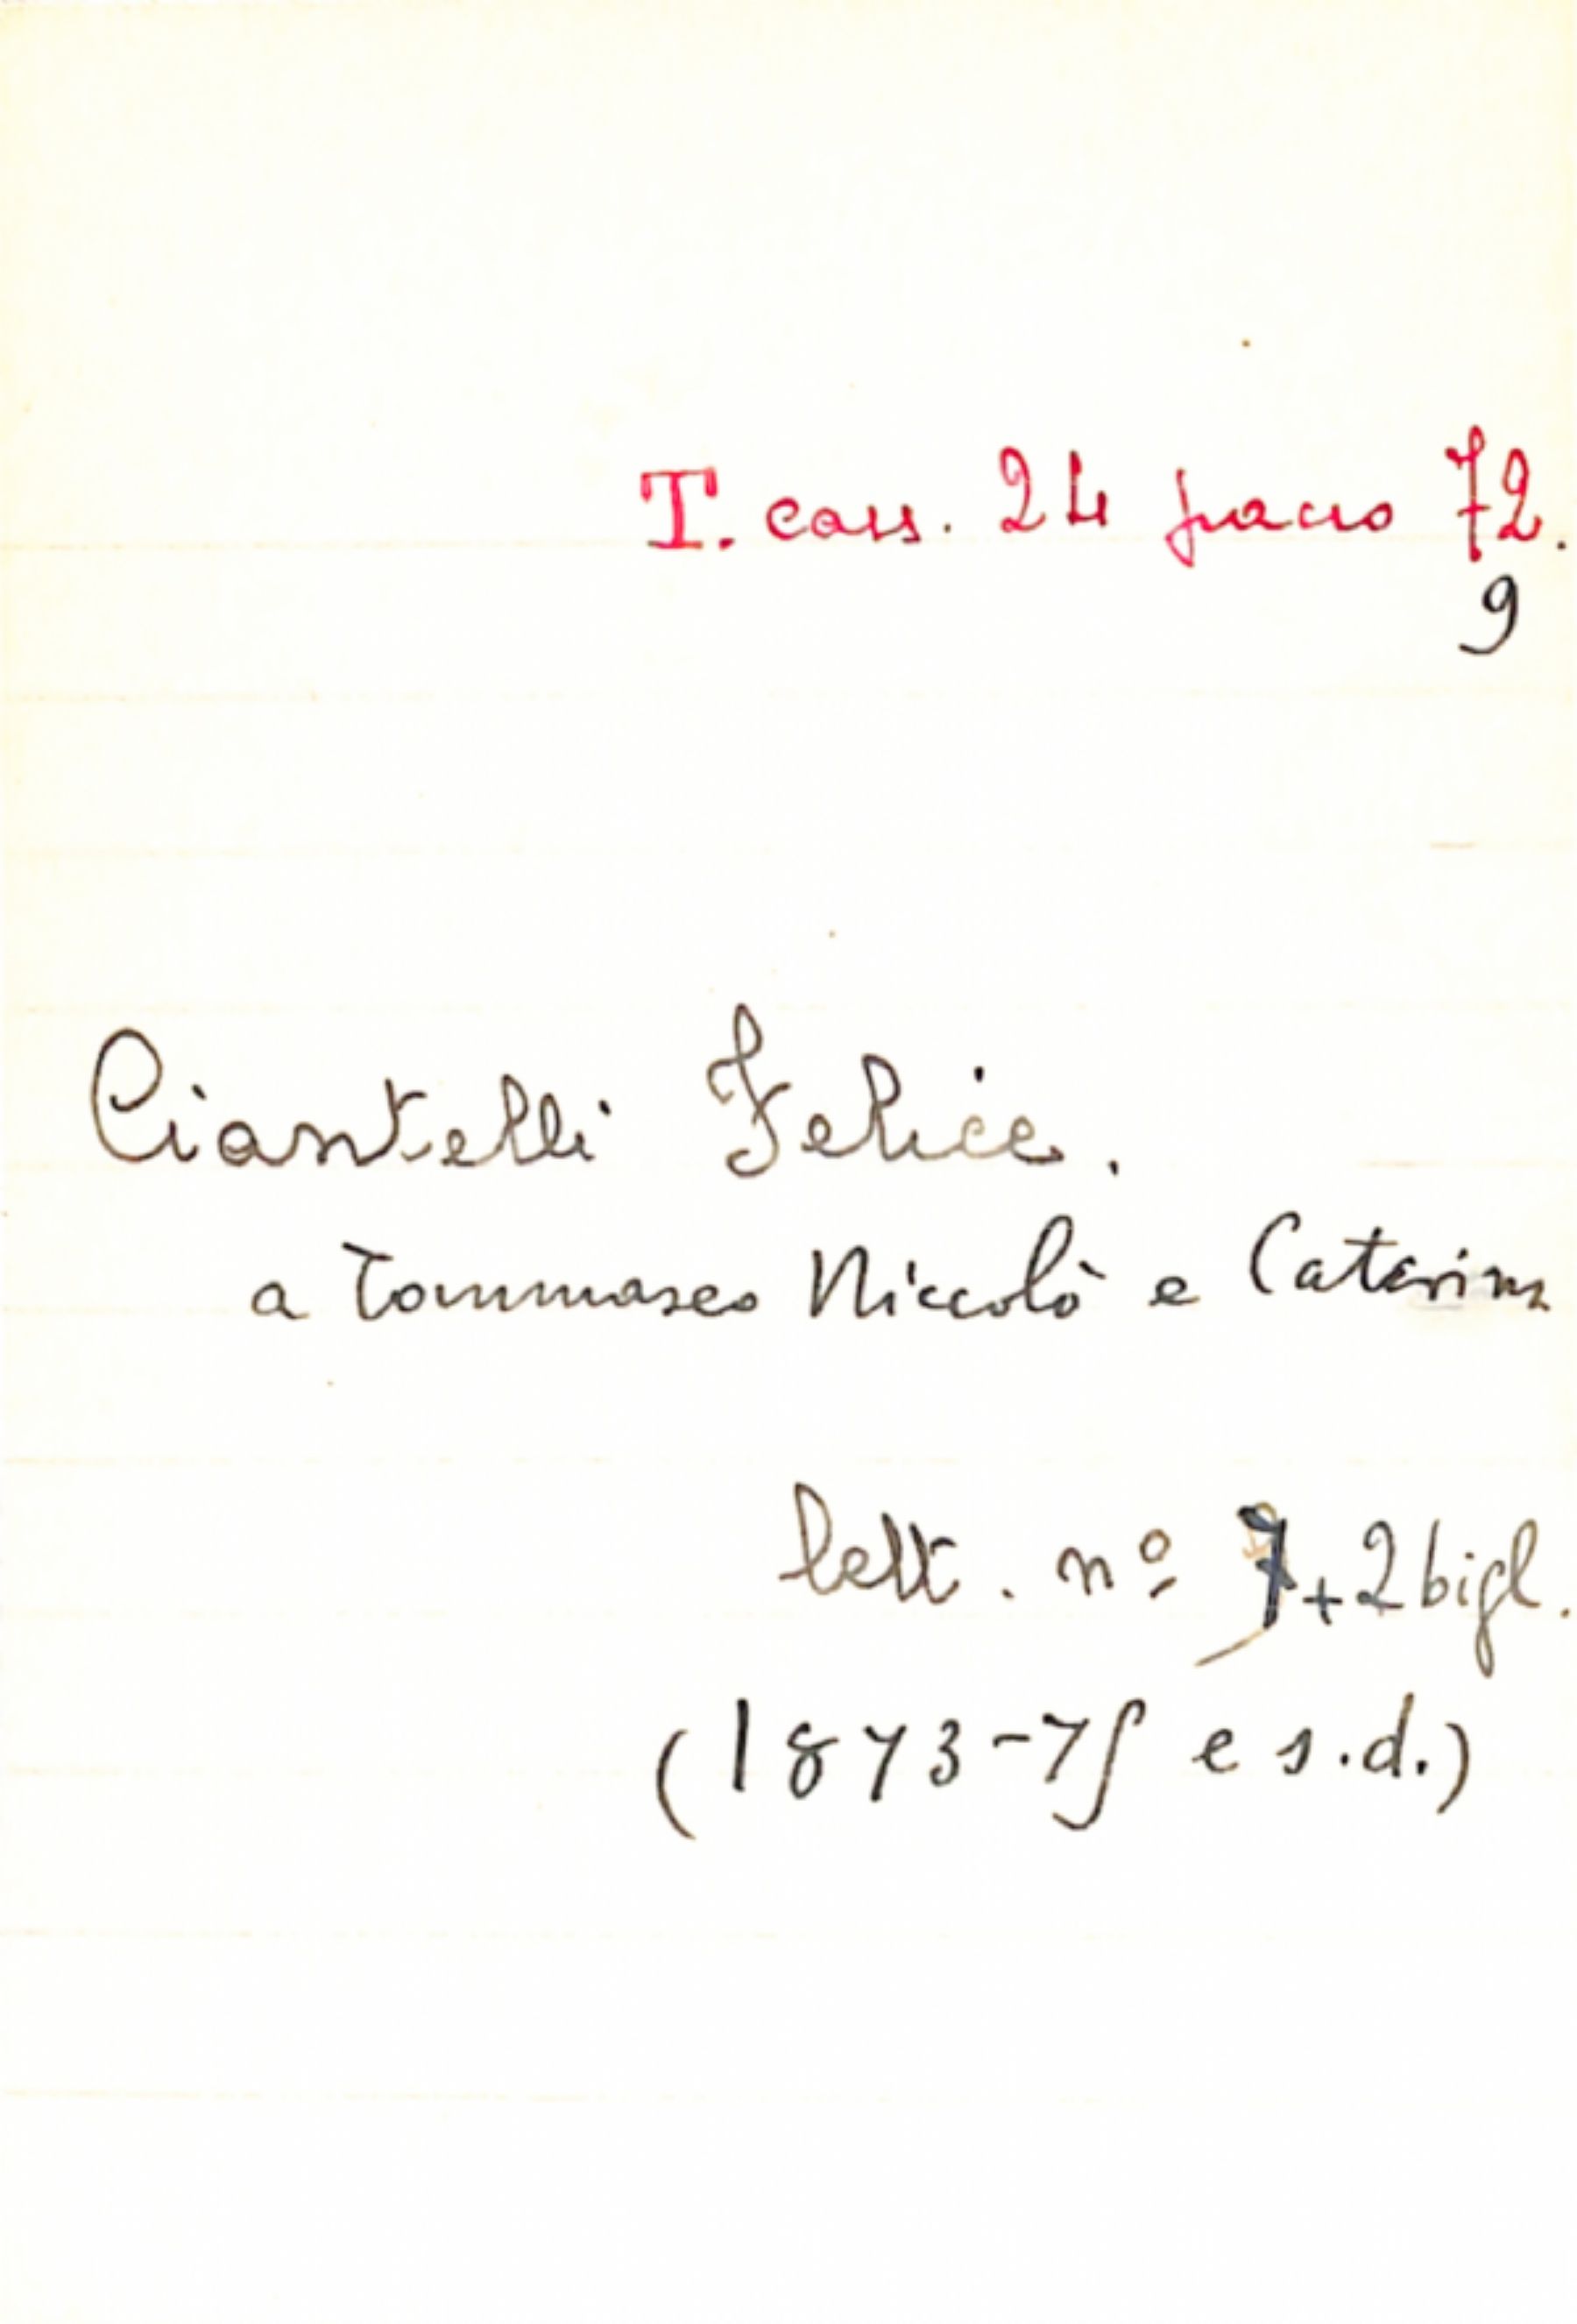 T. cass. 24 pacco 72.
9
Ciantelli Felice.
a Tommaseo Niccolò e Caterina
lett. nº 7 + 2 bigl.
(1873-75 e s.d.)